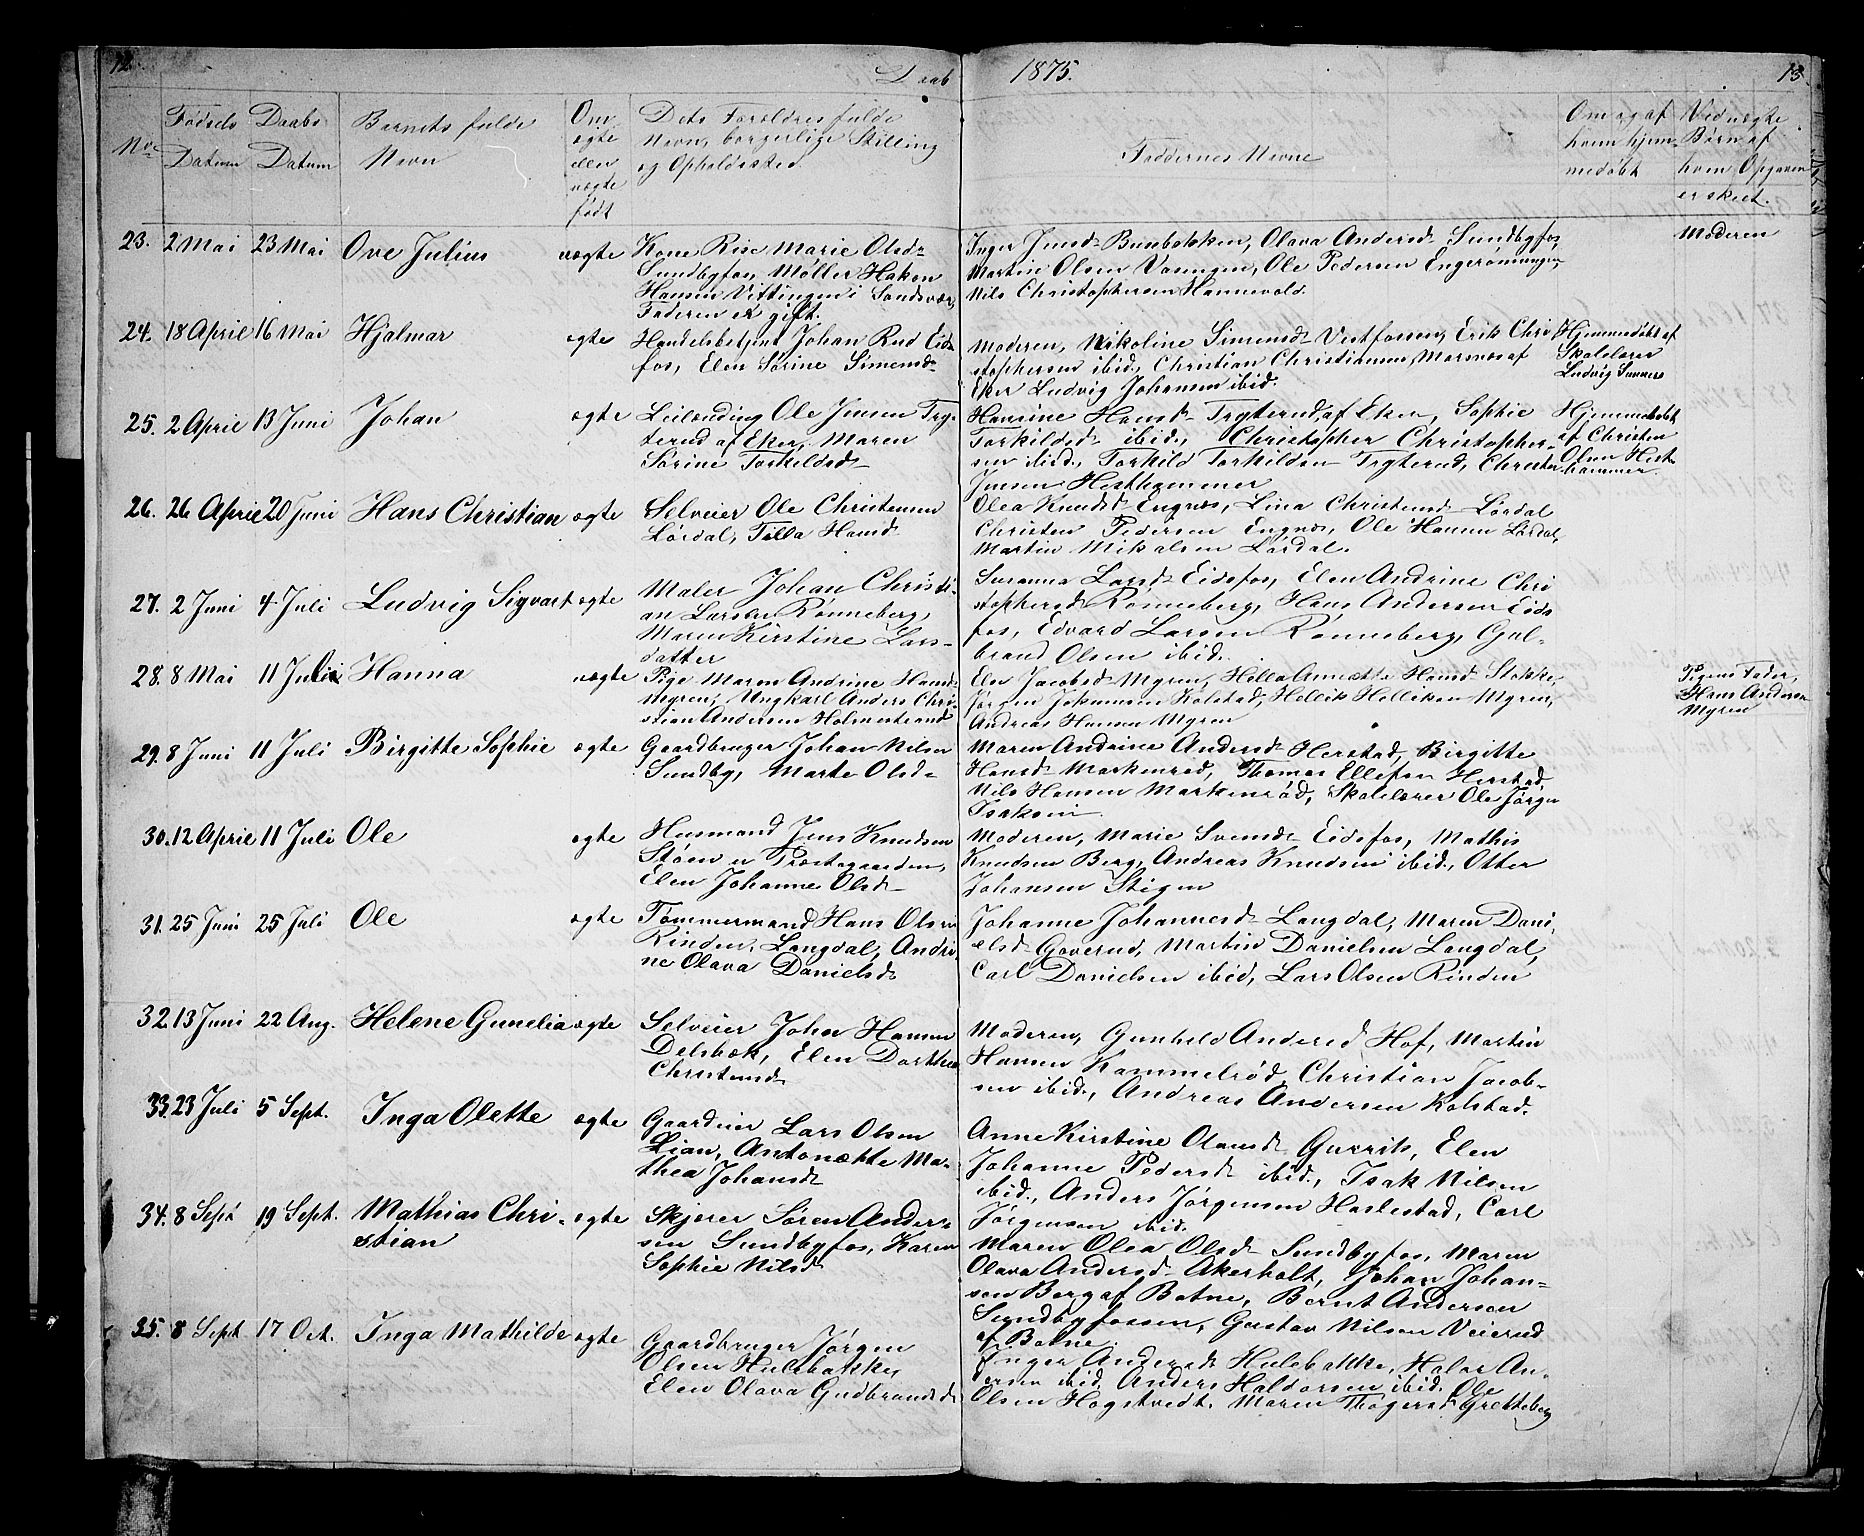 12.
Daab
1875.
13.
No
Fødsels Datum
Daabs Datum
Barnets fulde Navn
Om ægte eller uægte født
Dets Forældres fulde
Navn, borgerlige Stilling
og Opholdssted.
Faddernes Navne
Om og af hvem hjemmedøbt
Ved uægte Børn af hvem Opgaven er skeet.
23. 2 Mai 23 Mai Ove Julius uægte
Kone Rise Marie Olsd-
Sundbyfos, Møller Haken
Hansen Vittingen i Sandsvær,
Faderen er gift.
Inger Jensd- Bunbakken, Olava Andersd- Sundbyfos,
Martin Olsen, Ole Pedersen
Nils Christophersen Hannevold.
Moderen
24. 18 April 16 Mai Hjalmar ægte
Handelsbetjent Johan Rud Eids
fos, Elen Sørine Simensd-
Moderen, Nikoline Simensd- Vestfossen, Erik Chri
stophersen ibid., Christian Christiansen, af
Eker Ludvig Johansen ibid.
Hjemmedøbt af
Skolelærer
Ludvig
25. 2 April 13 Juni Johan ægte
Leilænding Ole Jensen Tryterud
af Eker, Maren
Sørine Torkildsd-
Hansine Hansd- Tryterud, af Eker, Sophie
Torkildsd- ibid., Christopher Christopher-
sen ibid., Torkild Torkildsen Tryterud, Christen
Jensen Hesthammer
Hjemmedøbt
af Christen
Olsen Hest
hammer.
26. 26 April 20 Juni Hans Christian ægte
Selveier Ole Christensen
Lørdal, Hansd-
Olea Knudsd- Engnæs, Lina Christensd- Lørdal
Christen Pedersen Engnæs, Ole Hansen Lørdal,
Martin Mikalsen Lørdal.
27. 2 Juni 4 Juli Ludvig Sigvart ægte
Maler Johan Christi-
an Larsen Rønneberg,
Maren Kirstine Lars-
datter
Susanna Larsd- Eidsfos, Elen Andrine Chri
stophersd- Rønneberg, Hans Andersen Eids
fos, Edvard Larsen Rønneberg, Gul-
brand Olsen ibid.
28. 8 Mai 11 Juli Hanna uægte
Pige Maren Andrine Hansd-
Myren, Ungkarl Anders Chri-
stian Andersen Holmestrand
Elen Jacobsd- Myren, Annette Hansd- Stokke,
Jørgen Johannsen Kolstad, Hellik Helliksen Myren,
Andreas Hansen Myren
Pigens Fader,
Hans Andersen
Myren
29. 8 Juni 11 Juli Birgitte Sophie ægte
Gaardbruger Johan Nilsen
Sundby, Marte Olsd-
Maren Andrine Andersd- Herstad, Birgitte
Hansd- Markenrød, Thomas Ellefsen Herstad,
Nils Hansen Markenrød, Skolelærer Ole Jørgen
Isaksen.
30. 12 April 11 Juli Ole ægte
Husmand Jens Knudsen
Støen u Præstegaarden,
Elen Johanne Olsd-
Moderen, Marie Svensd- Eidsfos, Mathis
Knudsen Berg, Andreas Knudsen ibid., Otter
Johansen Stigen
31. 25 Juni 25 Juli Ole ægte
Tømmermand Hans Olsen
Rinden, Langdal, Andri
ne Olava Danielsd-
Johanne Johannesd- Langdal, Maren Dani
elsd- Goverud, Martin Danielsen Langdal,
Carl Danielsen ibid., Lars Olsen Rinden
32. 13 Juni 22 Aug. Helene Gunelia ægte
Selveier John Hansen
Delsbæk, Elen Dorthea
Christensd-
Moderen, Gunhild Andersd Hof, Martin
Hansen Kammelrød, Christian Jacob-
sen ibid., Andreas Andersen Kolstad.
33. 23 Juli 5 Sept. Inga Olette ægte
Gaardeier Lars Olsen
Lian, Antonætte Ma-
thea Johansd-
Anne Kirstine Olausd- Elen
Johanne Pedersd- ibid., Isak Nilsen
ibid., Anders Jørgensen Haslestad, Carl
Jørgensen ibid.
34. 8 Sept 19 Sept. Mathias Chri-
stian ægte
Skjærer Søren Ander-
sen Sundbyfos, Karen
Sophie Nilsd
Maren Olea Olsd- Sundbyfos, Maren
Olava Andersd- Akerholt, Johan Johan-
sen Berg af Botne, Bernt Andersen
Sundbyfossen, Gustav Nilsen Veierud
af Botne.
35. 8 Sept 17 Oct. Inga Mathilde ægte
Gaardbruger Jørgen
Olsen Hulebakke,
Elen Olava Gudbrandsd-
Inger Andersd- Hulebakke, Halor An-
dersen ibid, Anders Haldorsen ibid. Ole
Olsen Hogstvedt, Maren Thogersd- Gretteberg